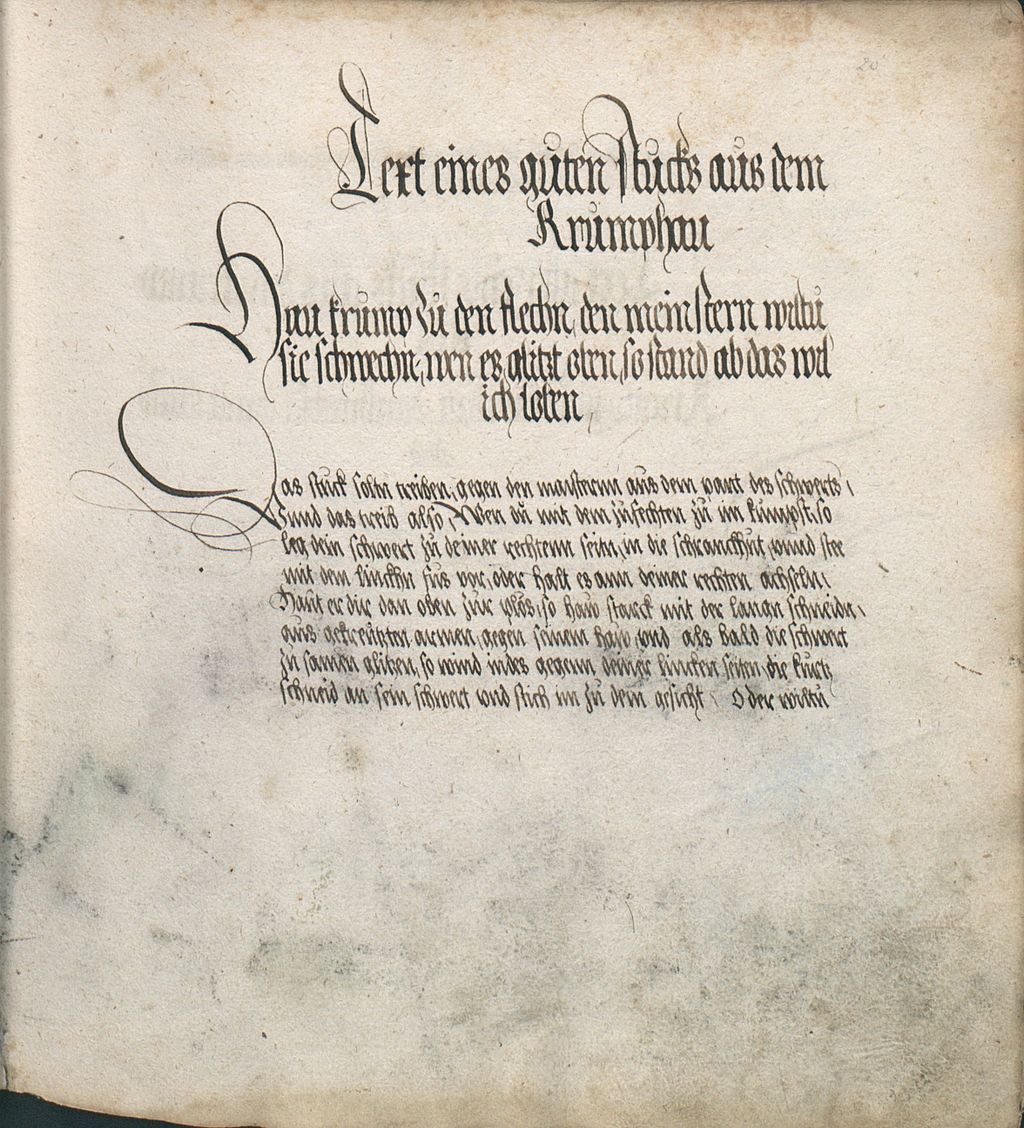 20
Text eines guten stucks aus dem
Krumphau
Hau krump zu den flechn, den meinstern wiltu
sie schwechn, wen es glitzt oben, so stand ab das wil
ich loben,
Das stuck soltu treiben, gegen den maisterm aus dem vant des schwerts,
vnnd das treib also, Wen du mit dem zufechten zu im kumpst, so
leg dein schwert zu deiner rechtenn seitn, in die schranckhut, vnnd stee
mit dem linckhn fus vor, oder halt es ann deiner rechten achseln,
Haut er dir dan oben zur plös, so haw starck mit der langn schneidn,
aus gekreutzten armen, gegen seinem haw, vnd als bald die schwert
zu samen glitzen, so wind indes gegenn deiner lincken seiten, die kurtz
schneid an sein schwert vnd stich im zu dem gesicht, Oder wiltu